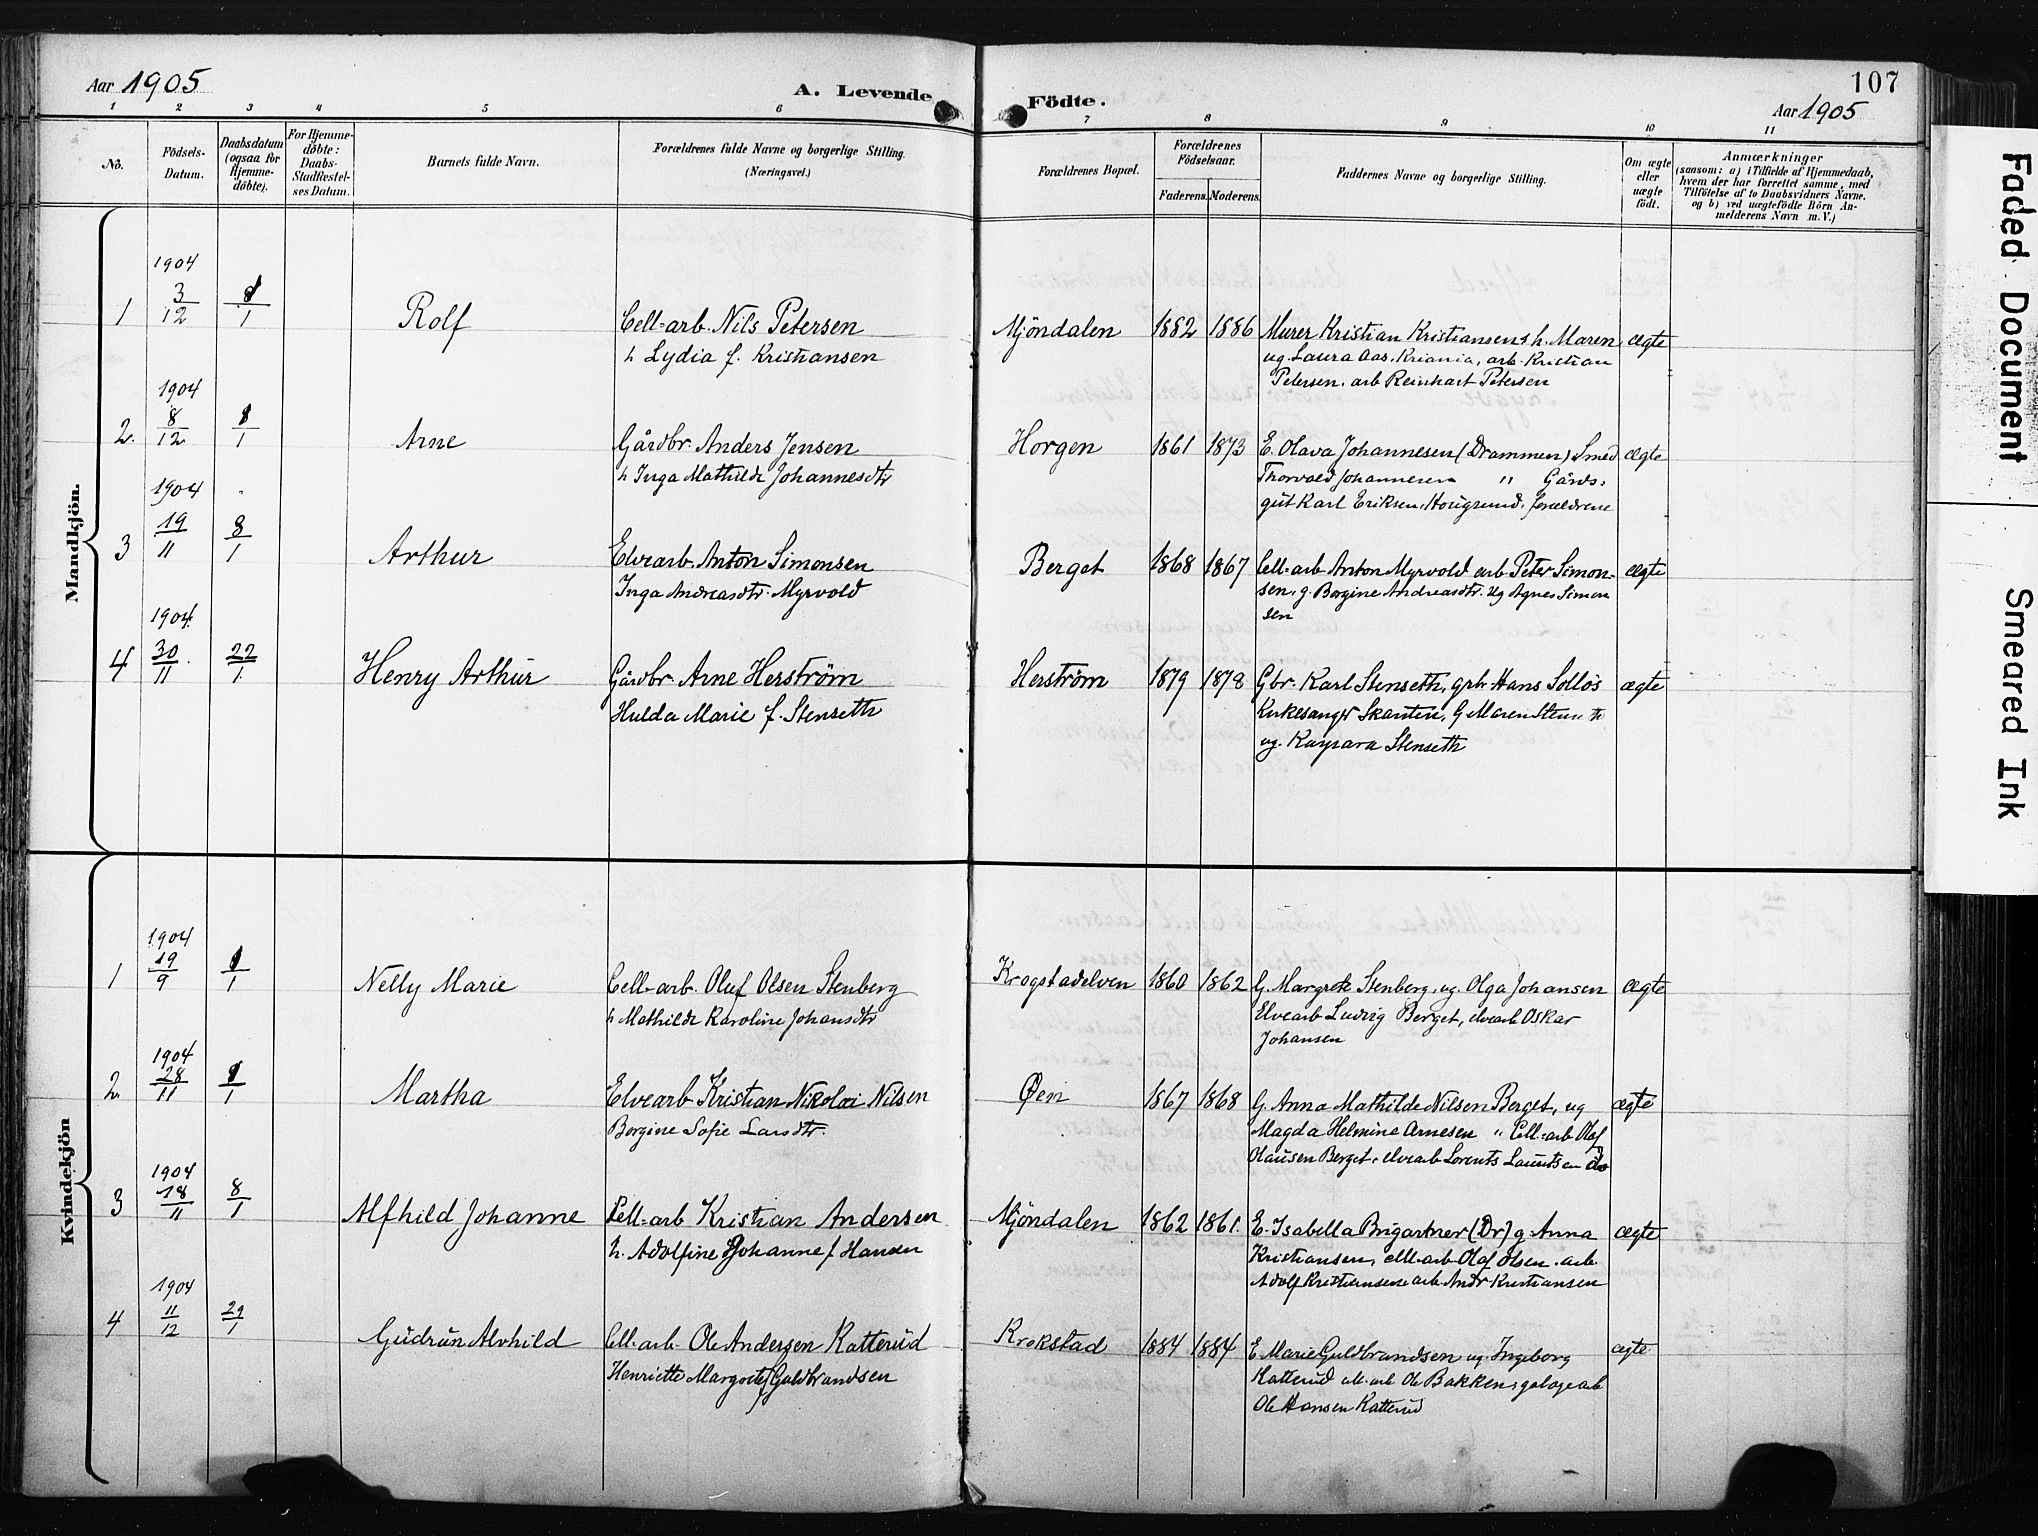 Aar 1905
A. Levende Födte.
107
Aar 1905
1 2 3 4 5 6 7 8 9 10 11
No.
Födsels-
Datum.
Daabsdatum
(ogsaa for
Hjemme-
döbte).
For Hjemme-
döbte:
Daabs-
Stadfæstel-
ses Datum.
Barnets fulde Navn.
Forældrenes fulde Navne og borgerlige Stilling.
(Næringsvei.)
Forældrenes Bopæl.
Forældrenes
Födselsaar.
Faderens. Moderens.
Faddernes Navne og borgerlige Stilling.
Om ægte
eller
uægte
födt.
Anmærkninger
(saasom: a) i Tilfælde af Hjemmedaab,
hvem der har forrettet samme, med
Tilföielse af to Daabsvidners Navne,
og b) ved uægtefödte Börn An-
melderens Navn m. V.)
Mandkjön.
1904
1 3/12 8/1 Rolf Cell-arb. Nils Petersen Mjöndalen 1882 1886 Murer Kristian Kristiansen & h. Maren ægte
h Lydia f. Kristiansen ug. Laura Aas. Kriania, arb. Kristian
Petersen, arb Reinhart Petersen
1904
2. 8/12 1/1 Arne Gårdbr. Anders Jensen Horgen 1861 1873 E. Olava Johannesen (Drammen) Smed ægte
h Inga Mathilde Johannesdtr Thorvald Johannesen " Gårds-
gut Karl Eriksen, forældrene
1904
3 19/11 8/1 Arthur Elvearb. Anton Simonsen Berget 1868 1867 Cell-arb Anton Myrvold arb Peter Simon- ægte
Inga Andreasdtr. Myrvold sen, g. Borgine Andreasdtr. ug Agnes Simon
sen
1904
4 30/11 22/1 Henry Arthur Gårdbr. Arne Herström Herström 1879 1878 Gbr. Karl Stenseth, grb. Hans Solløs ægte
Hulda Marie f. Stenseth Kirkesanger G Maren
ug. Stenseth
Kvindekjön
1904
1 19/9 1/1 Nelly Marie Cell-arb. Oluf Olsen Stenberg Krogstadelven 1860 1862 G. Margrete Stenberg, ug. Olga Johansen ægte
h Mathilde Karoline Johansdtr Elvearb Ludvig Berget, elvearb Oskar
Johansen
1904
2 28/11 1/1 Martha Elvearb Kristian Nikolai Nilsen Øen 1867 1868 G. Anna Mathilde Nilsen Berget, ug ægte
Borgine Sofie Larsdtr. Magda Helmine Arnesen " Cell-arb Olaf
Olausen Berget, elvearb Lorents Lauritsen do
1904
3 18/11 8/1 Alfhild Johanne Cell-arb Kristian Andersen Mjöndalen 1862 1861. E. Isabella (Dr) g Anna ægte
h. Adolfine Johanne f Hansen Kristiansen, cell-arb Olaf Olsen. arb.
Adolf Kristiansen arb Andr Kristiansen
1904
4 11/12 29/1 Gudrun Alvhild Cell-arb. Ole Andersen Katterud Krokstad 1884 1884 E Marie Guldbrandsen ug. Ingeborg ægte
Henriette Margrete f Guldbrandsen Katterud cell-arb Ole Bakken,
Ole Hansen Katterud
Faded Document
Smeared Ink